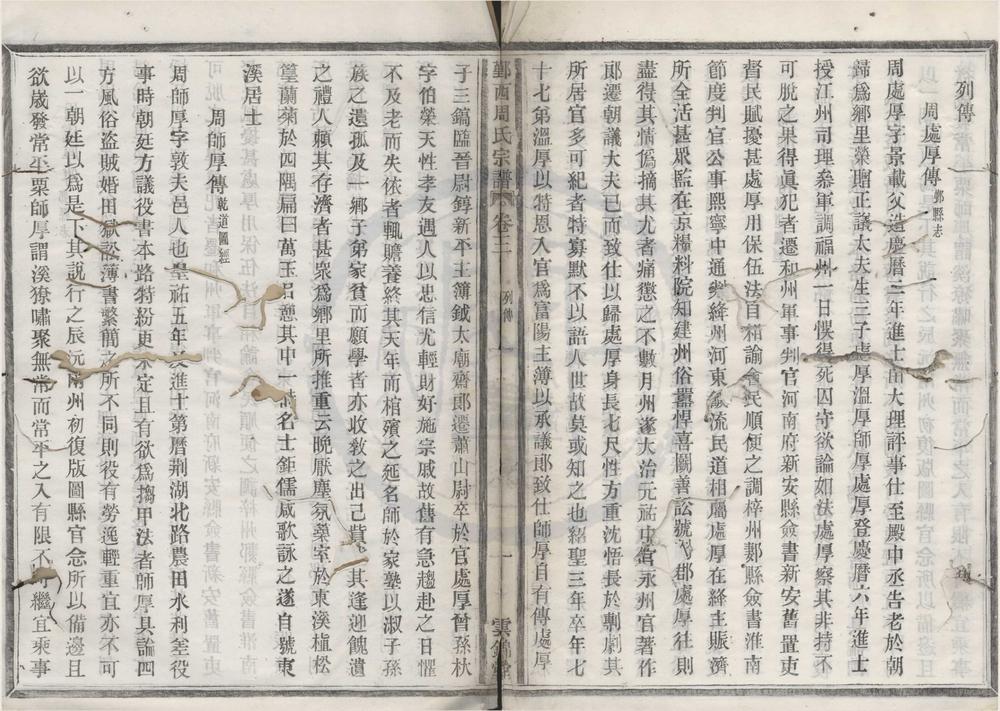 列傳
周處厚傳 鄞縣志
周處厚字景載父造慶曆二年進士由大理評事仕至殿中丞告老於朝
歸爲鄉里榮贈正議大夫生三子處厚溫厚師厚處厚登慶曆六年進士
授江州司理叅軍調福州一日悞得死囚守欲論如法處厚察其非持不
可脫之果得眞犯者遷和州軍事判官河南府新安縣僉書新安舊置吏
督民賦擾甚處厚用保伍法目相諭會民順便之調梓州郪縣僉書淮南
節度判官公事熙寧中通判絳州河東 流民道相屬處厚在絳主賑濟
所全活甚眾監在京糧料院知建州俗嚚悍喜鬭善訟號 郡處厚往則
盡得其情僞摘其尤者痛懲之不數月州遂大治元祐中 永州官著作
郎遷朝議大夫已而致仕以歸處厚身長七尺性方重沈悟長於剸劇其
所居官多可紀者特寡默不以語人世故莫或知之也紹聖三年卒年七
十七弟溫厚以特恩入官爲富陽主薄以承議郎致仕師厚自有傳處厚
鄞西周氏宗譜 卷三 列傳 一 雲 堂
子三鎬臨晉尉錞新平主簿鉞太廟齋郎遷蕭山尉卒於官處厚曾孫杕
字伯榮天性孝友遇人以忠信尤輕財好施宗戚故舊有急趨赴之日懼
不及老而失依者輒贍養終其天年而棺殯之延名師於家塾以淑子孫
族之遺孤及一鄉子弟家貧而願學者亦收敎之出己貲 其逢迎餽遺
之禮人賴其存濟者甚眾爲鄉里所推重云晚厭塵氛築室於東溪植松
篁蘭菊於四隅扁曰萬玉吕憩其中一時名士鉅儒咸歌詠之遂自號東
溪居士
周師厚傳 乾道圖經
周師厚字敦夫邑人也皇祐五年 進士第曆荆湖北路農田水利差役
事時朝廷方議役書本路特紛更未定且有欲爲搊甲法者師厚具論四
方風俗盜賊婚田獄訟薄書繫簡之所不同則役有勞逸輕重宜亦不可
以一朝廷以爲是下其說行之辰沅兩州初復版圖縣官念所以備邊且
欲歲發常平粟師厚謂溪獠嘯聚無常而常平之入有限不可繼宜乘事